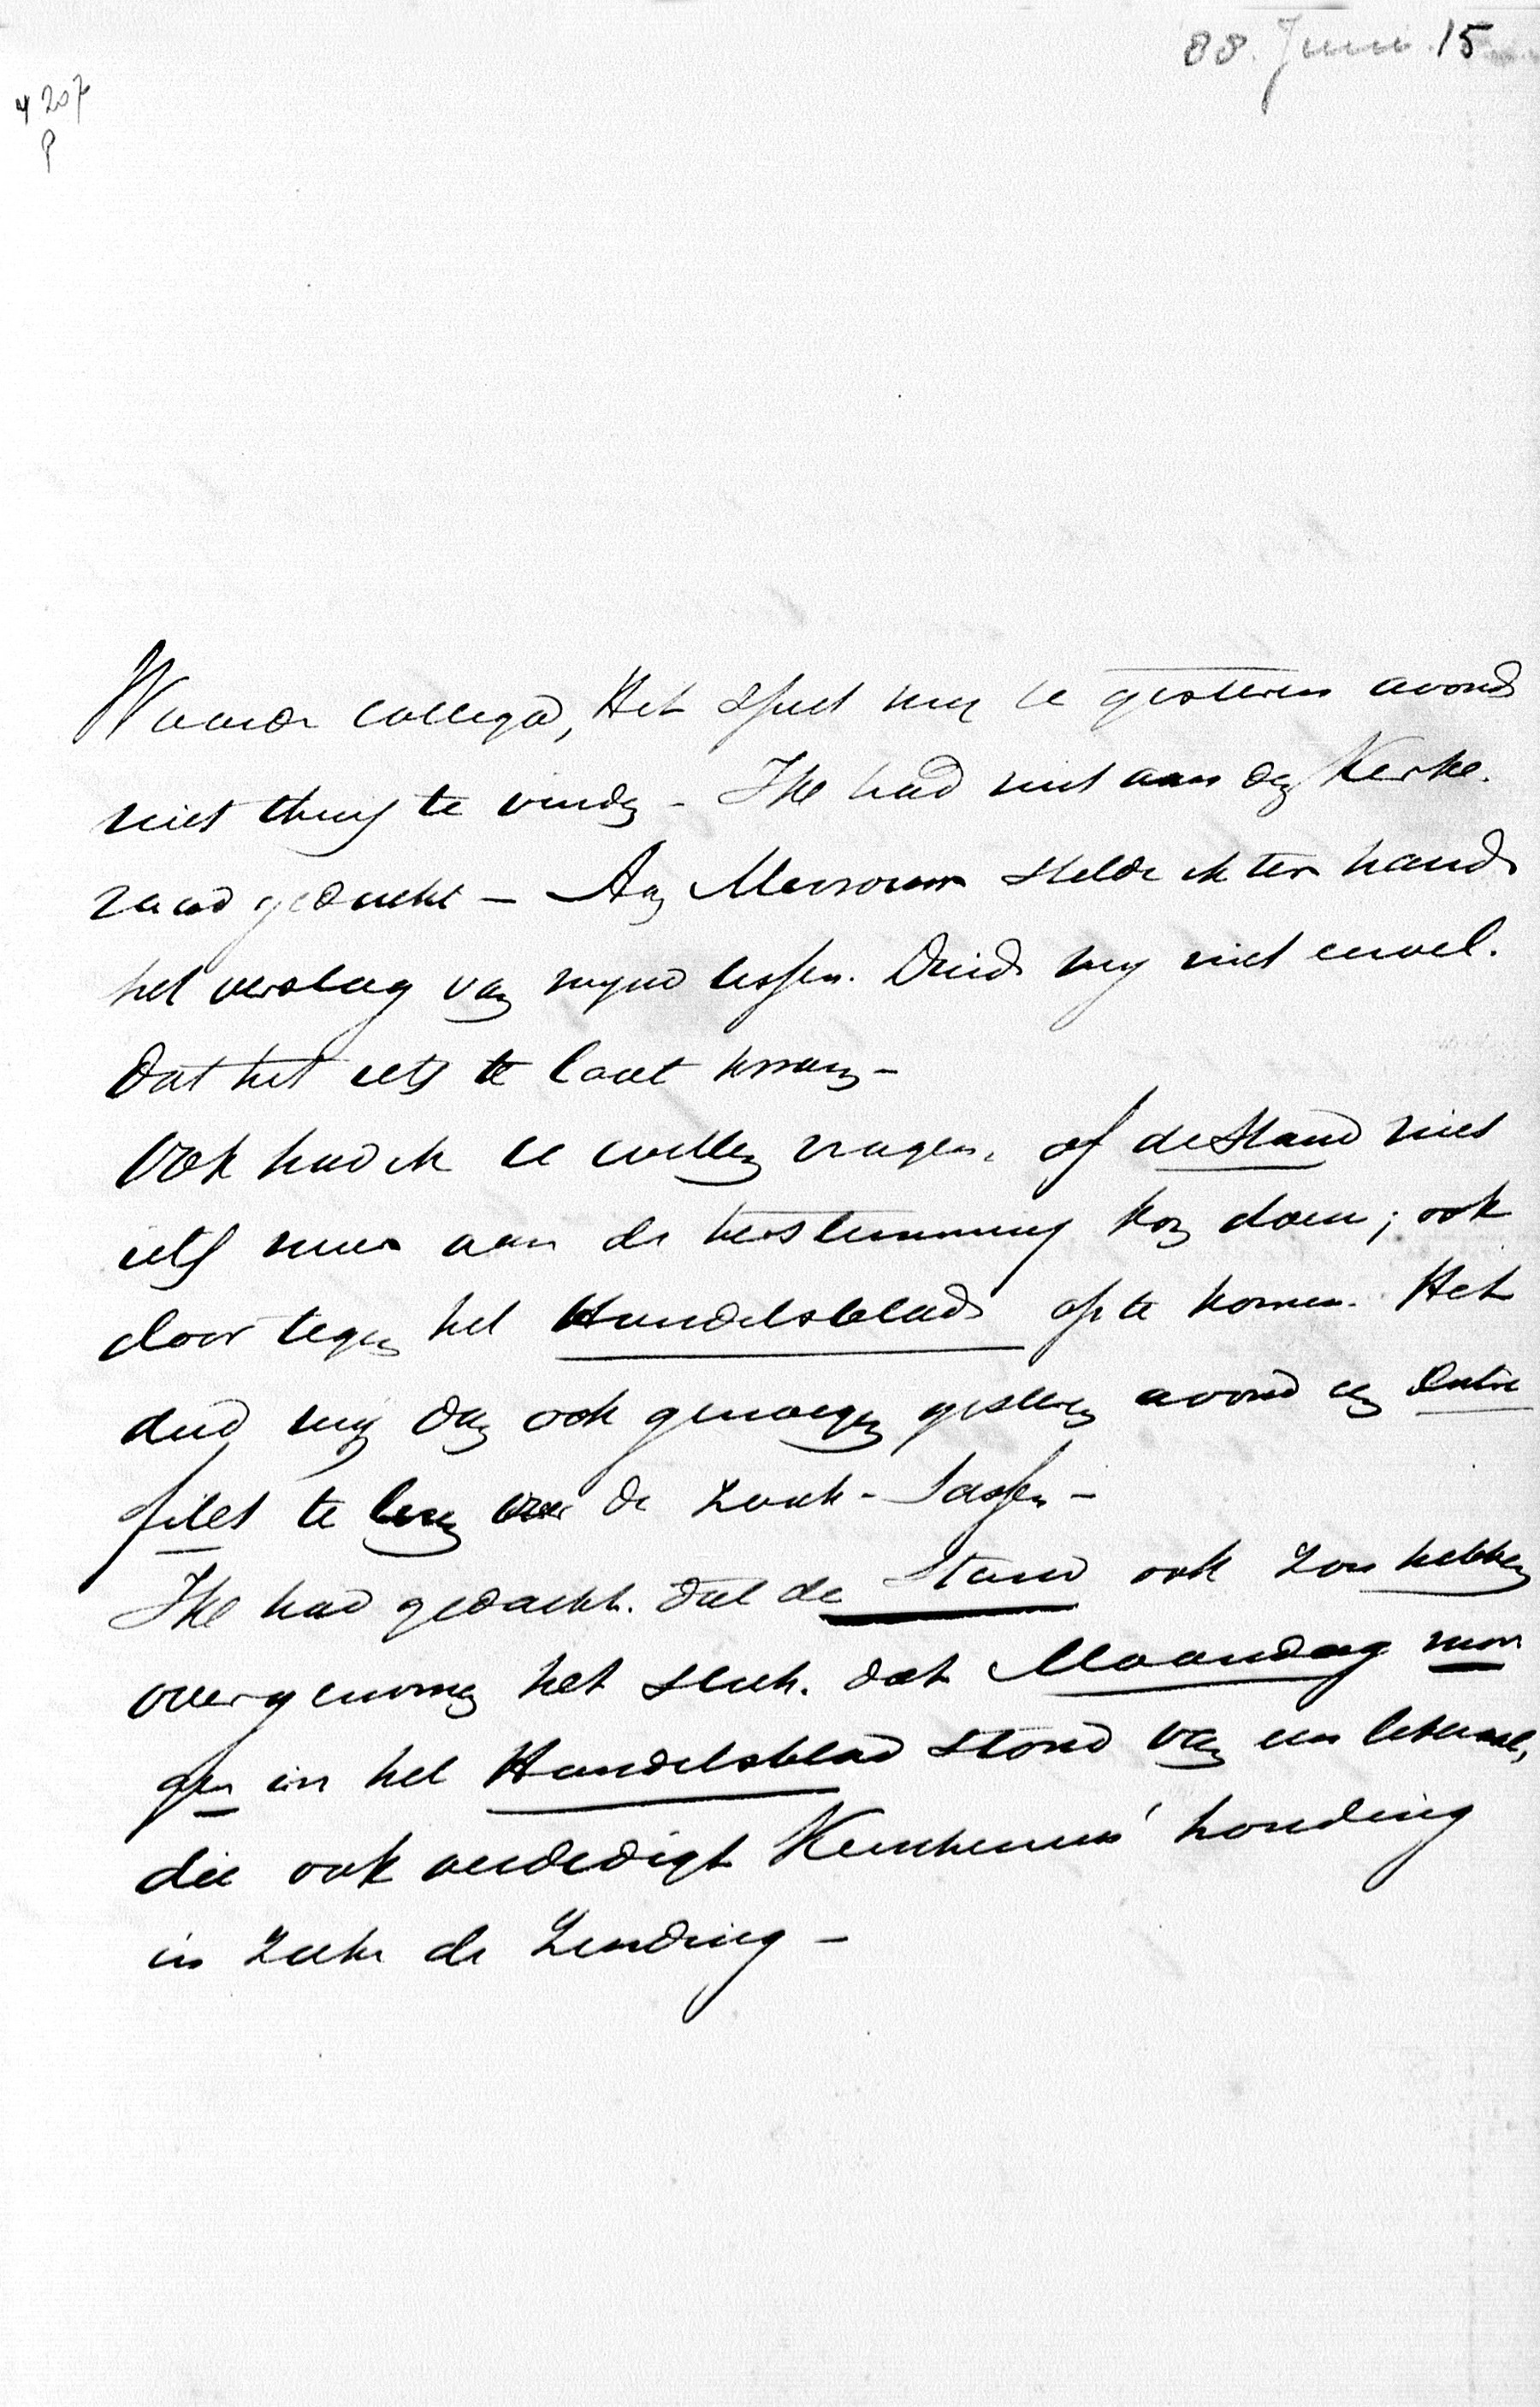 88. Juni 15
4207
P
Waarde Collega, Het speet mij U gisteren avond
niet thuis te vinden - Ik had niet aan den Kerke-
raad gedacht - Aan Mevrouw stelde ik ter hand
het verslag van mijne lessen. Duid mij niet euvel.
dat het iets te laat kwam -
Ook had ik U willen vragen, of de Stand niet
iets meer aan de herstemming kon doen; ook
door tegen het Handelsblad op te komen. Het
deed mij dan ook genoegen gisteren avond een Entre
filet te lezen over de zaak-Sassen -
Ik had gedacht. dat de Stand ook zou hebben
overgenomen het stuk. dat Maandag mor
gen in het Handelsblad stond van een liberaal,
die ook verdedigt Keuchenius' houding
in zake de Zending -